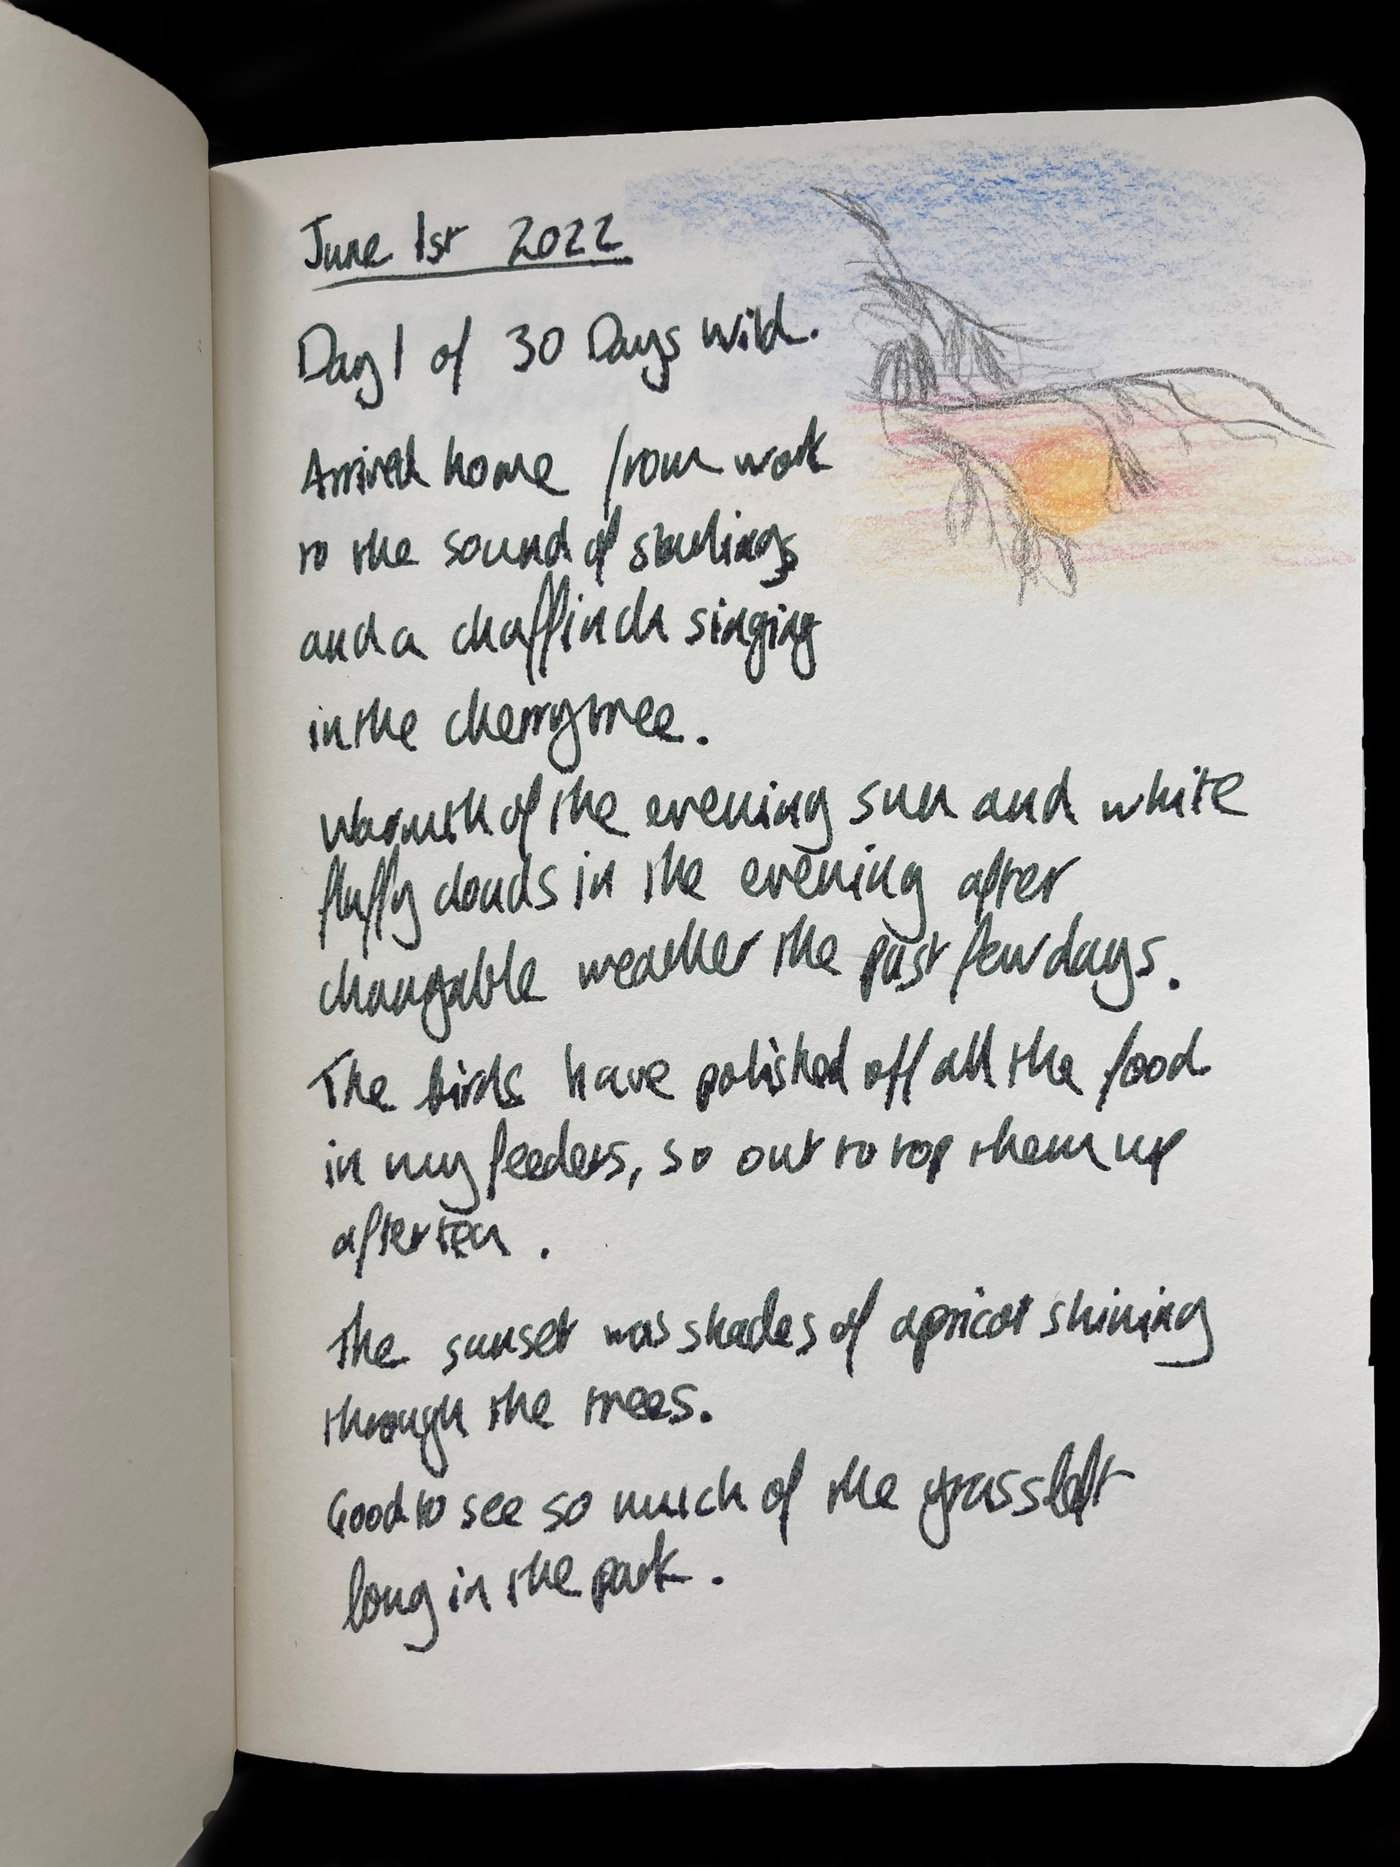 June 1st 2022
Day 1 of 30 Days Wild.
Arrived home from work
to the sound of starlings
and a chaffinch singing
in the cherry tree.
Warmth of the evening sun and white
fluffy clouds in the evening after
changable weather the past few days.
The birds have polished off all the food
in my feeders, so out to top them up
after tea.
The sunset was shades of apricot shining
through the trees.
Good to see so much of the grass left
long in the park.